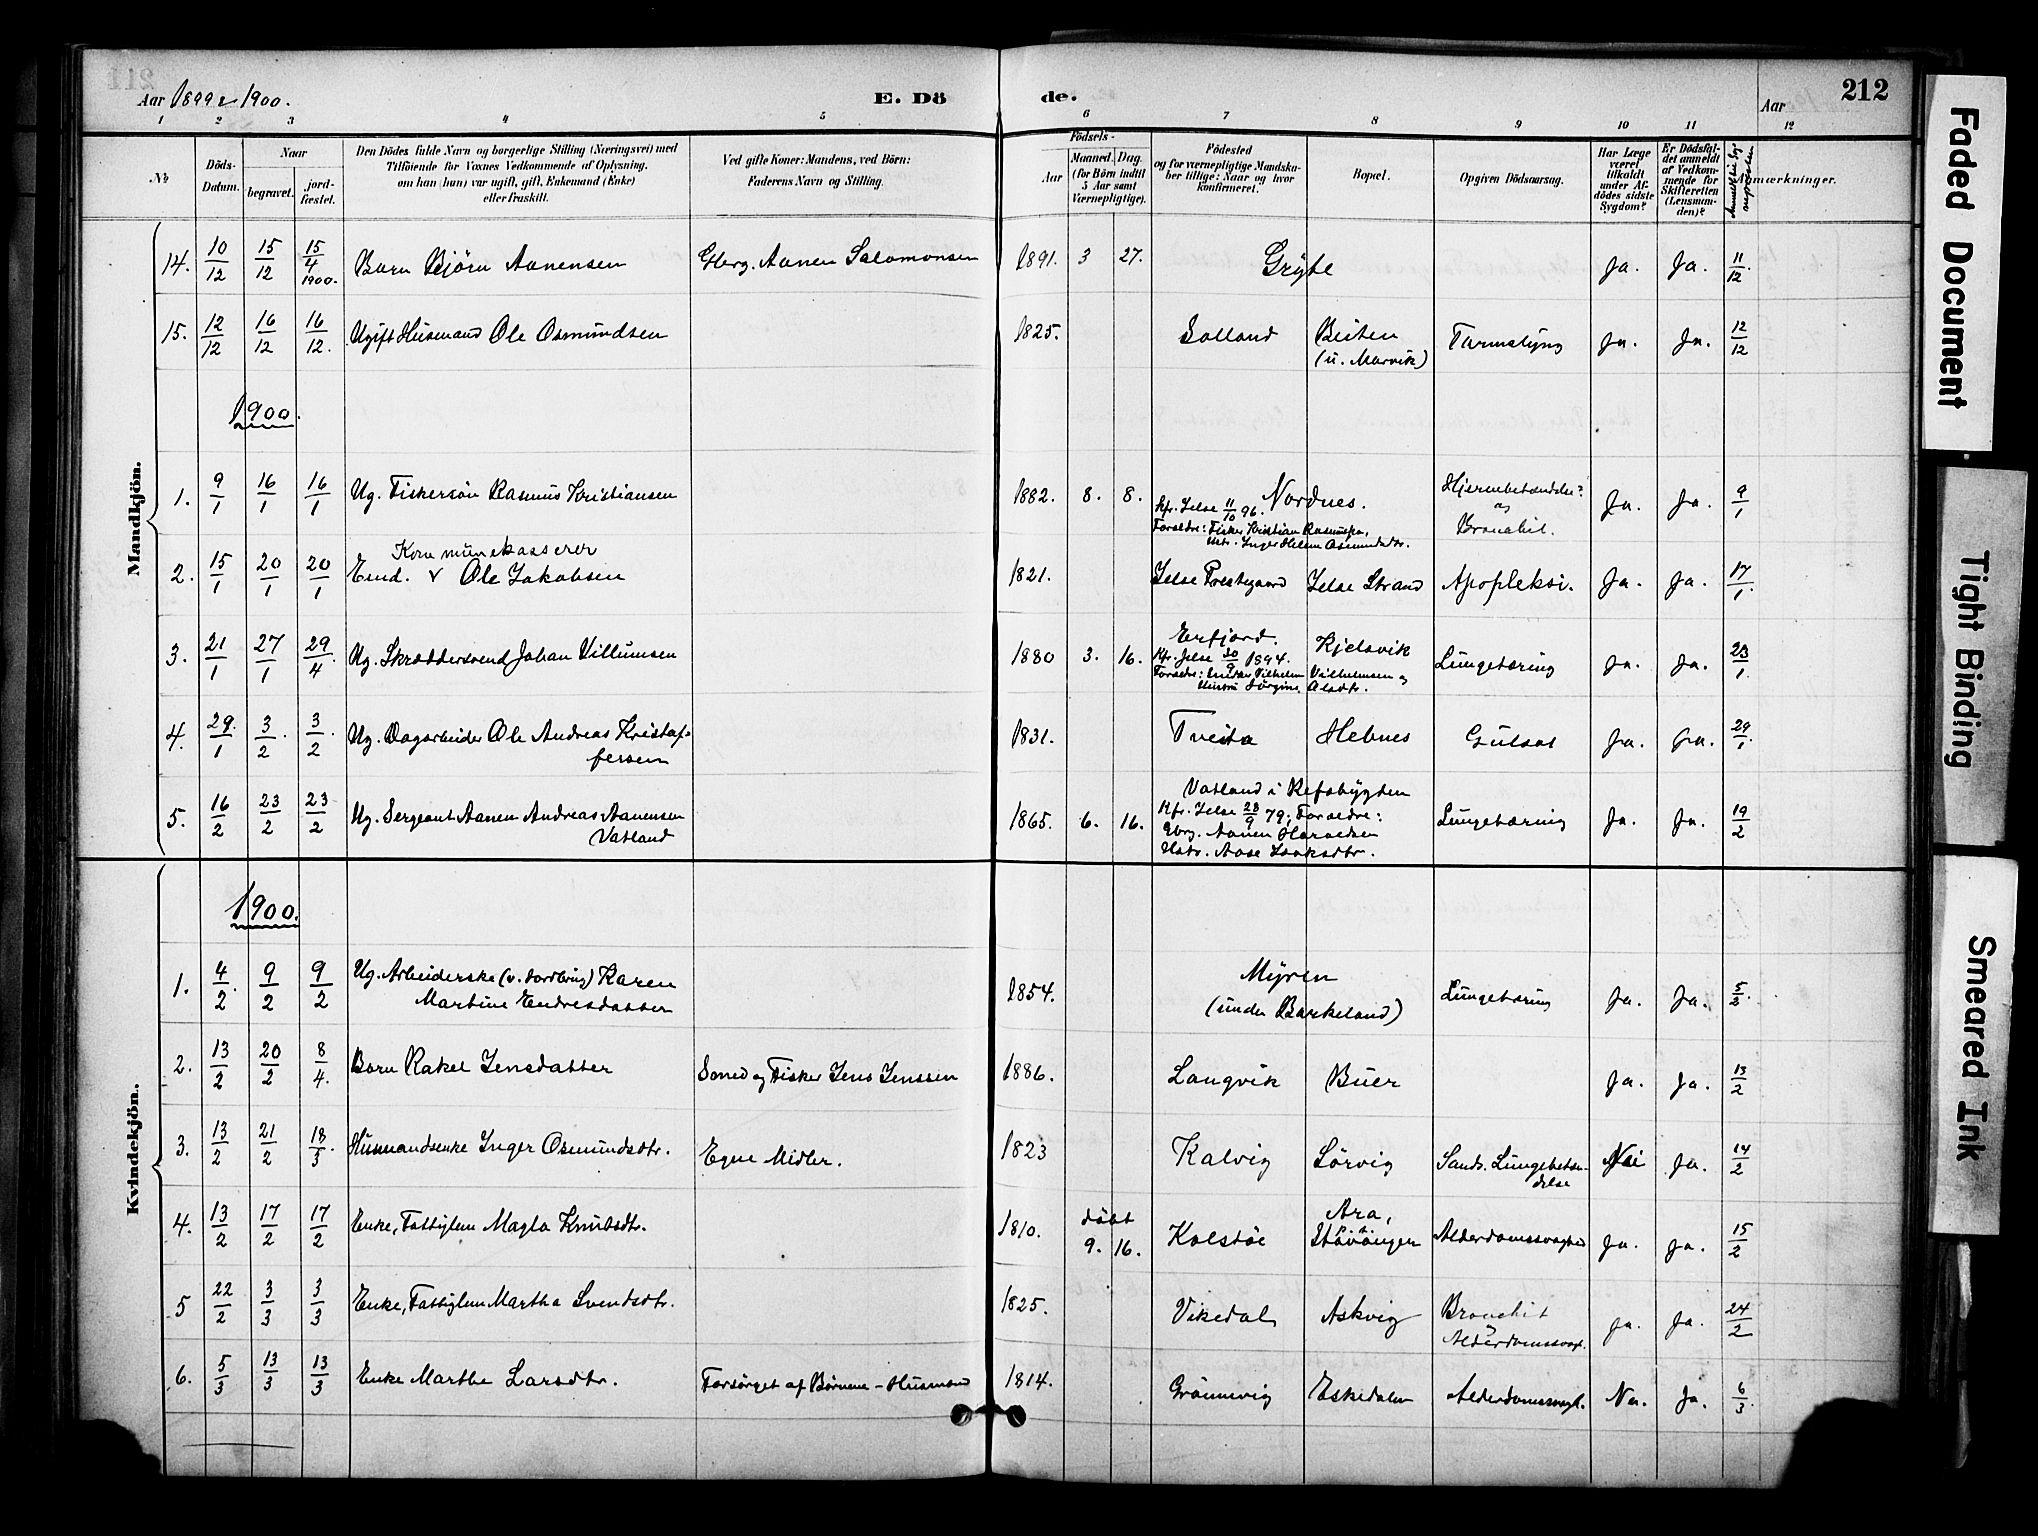 Aar 1899 & 1900. E. Dö de. Aar 212
1 2 3 4 5 6 7 8 9 10 11 12
No Döds-Datum. Naar begravet. jord-fæstet.
Den Dödes fulde Navn og borgerlige Stilling (Næringsvei) med
Tilföiende for Voxnes Vedkommende af Oplysning,
om han (hun) var ugift, gift, Enkemand (Enke)
eller fraskilt.
Ved gifte Koner: Mandens, ved Börn:
Faderens Navn og Stilling.
Födsels-
Aar Maaned. Dag.
(for Börn indtil
5 Aar samt
Værnepligtige).
Födested
og for værnepligtige Mandska-
ber tillige: Naar og hvor
konfirmeret.
Bopæl.
Opgiven Dödsaarsag.
Har Læge
været
tilkaldt
under Af-
dödes sidste
Sygdom?
Er Dödsfal-
det anmeldt
af Vedkom-
mende for
Skifteretten
(Lensman-
den)?
Anmærkninger.
Mandkjön.
14. 10/12 15/12 15/4 1900. Barn Björn Aanensen Gbrg. Aanen Salomonsen 1891. 3 27. Gryte Ja. Ja. 11/12
15. 12/12 16/12 16/12. Ugift Husmand Ole Osmundsen 1825. Solland Beiten Tarmslyng Ja. Ja. 12/12
(u. Marvik)
1900.
1. 9/1 16/1 16/1 Ug. Fiskersön Rasmus Kristiansen 1882. 8. 8. Nordnes. Hjernebetændelse? og Bronchit. Ja. Ja. 9/1
Kfr. Jelse 11/10 96.
Forældre: Fisker Kristian Rasmussen,
Hstr. Inger Helene Osmundsdtr.
Kommunekasserer
2. 15/1 20/1 20/1 Emd. v Ole Jakobsen 1821. Jelse Prestegaard Jelse Strand Apopleksi. Ja. Ja. 17/1.
3. 21/1 27/1 29/4 Ug. Skræddersvend Johan Villumsen 1880 3. 16. Erfjord. Kjelsvik Lungetæring Ja. Ja. 23/1.
Kfr. Jelse 30/9 1894.
Forældre: Vilhelm Vilhelmsen og
Hustru Jörgine
4. 29/1 3/2. 3/2. Ug. Dagarbeider Ole Andreas Kristof- 1831. Tveita Hebnes Gulsot Ja. Ja. 29/1.
fersen
5. 16/2 23/2 23/2 Ug. Sergeant Aanen Andreas Aanensen 1865. 6. 16. Lungetæring Ja. Ja. 19/2
Vatland
Vatland i Refsbygden
Kfr. Jelse 28/9 79; Forældre:
Gbrg. Aanen
Hstr. Aase
Kvindekjön.
1900.
1. 4/2. 9/2 9/2 Ug. Arbeiderske Karen 1854. Myren Lungetæring Ja. Ja. 5/2.
Martine Endresdatter (under Barkeland)
2. 13/2 20/2 8/4. Barn Rakel Jensdatter Smed og Fisker Jens Jenssen 1886. Langvik Buer Ja. Ja. 13/2
3. 13/2 21/2 18/3. Husmandsenke Inger Osmundsdtr. Egne Midler. 1823 Kalvig Sörvig Sands. Lungebetæn- Nei Ja. 14/2
delse
4. 13/2 17/2 17/2 Enke, Fattiglem Magla Knutsdtr. 1810. döbt 9. 16. Kolstöe Ara, Alderdomssvaghed Ja. Ja. 15/2
5 22/2 3/3 3/3 Enke, Fattiglem Martha Svendsdtr. 1825. Vikedal Askvig Bronchit Ja. Ja. 24/2
og
Alderdomssvagh.
6. 5/3 13/3 13/3 Enke Marthe Larsdtr. Forsörget af Börnene – Husmand 1814. Grönnevig Eskedalen Alderdomssvagh. Nei. Ja. 6/3.
Faded Document
Tight Binding
Smeared Ink